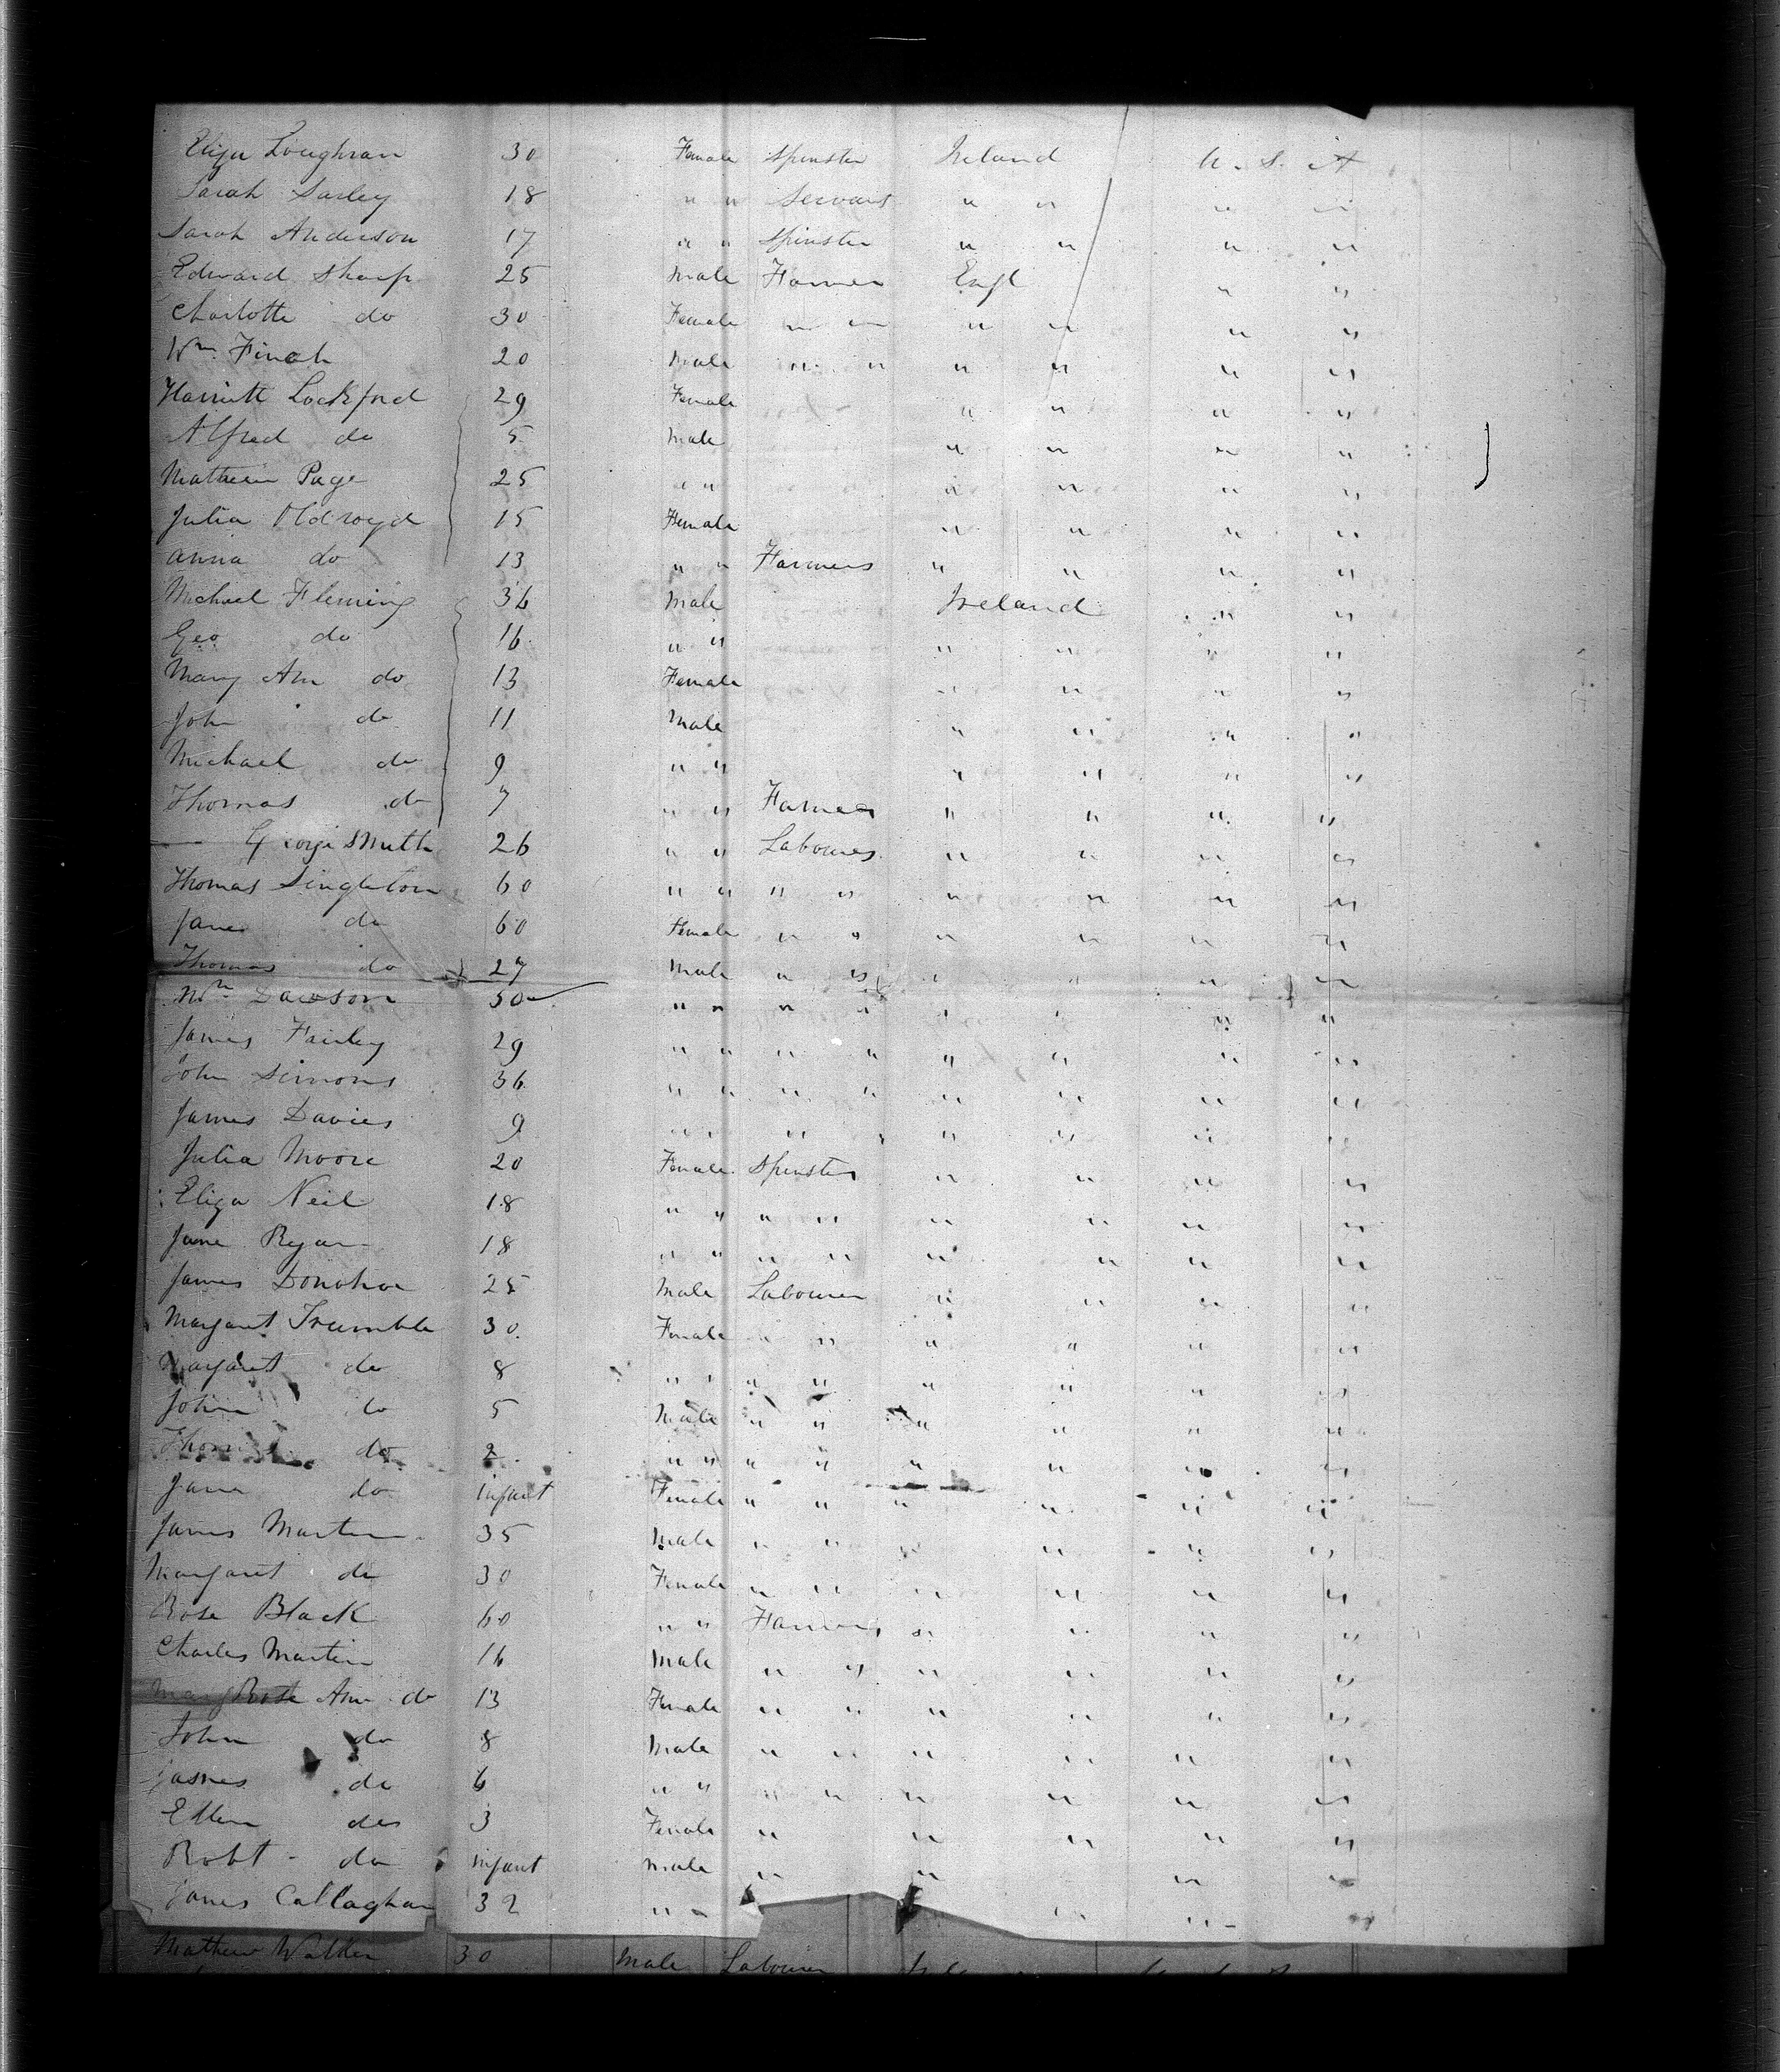 Eliza Loughran 30 Female Spinster Ireland U. S. A
Sarah Sarley 18 " " Servant " " " "
Sarah Anderson 17 " " Spinster " " " "
Edward Sharp 25 Male Farmer Engl " "
Charlotte do 30 Female " " " " " "
Wm. Finch 20 Male " " " " " "
Harriett Lockford 29 Female " " " "
Alfred do 5 Male " " " "
Mathew Page 25 " " " " " "
Julia Oldroyd 15 Female " " " "
Anna do 13 " " Farmers " " " "
Michael Fleming 36 Male Ireland " "
Geo. do 16 " " " " " "
Mary Ann do 13 Female " " " "
John do 11 Male " " " "
Michael do 9 " " " " " "
Thomas do 7 " " Farmers " " " "
George Smith 26 " " Labourers " " " "
Thomas Singleton 60 " " " " " " " "
Jane do 60 Female " " " " " "
Thomas do 27 Male " " " " " "
Wm Dawson 50 " " " " " " " "
James Fairley 29 " " " " " " " "
John Simons 36 " " " " " " " "
James Davies 9 " " " " " " " "
Julia Moore 20 Female Spinsters " " " "
Eliza Neil 18 " " " " " " " "
Jane Ryan 18 " " " " " " " "
James Donohoe 25 Male Labourer " " " "
Margaret Trumble 30 Female " " " " " "
Margaret do 8 " " " " " " " "
John do 5 Male " " " " " "
Thomas do 2 " " " " " " " "
Jane do infant Female " " " " " "
James Martin 35 Male " " " " " "
Margaret do 30 Female " " " " " "
Rose Black 60 " " Farmers " " " "
Charles Martin 16 Male " " " " " "
Mary Rose Ann do 13 Female " " " " " "
John do 8 Male " " " " " "
James do 6 " " " " " " " "
Ellen do 3 Female " " " " "
Robt do infant Male " " " "
James Callaghan 32 " " " "
Mathew Walden 30 Male Labourer